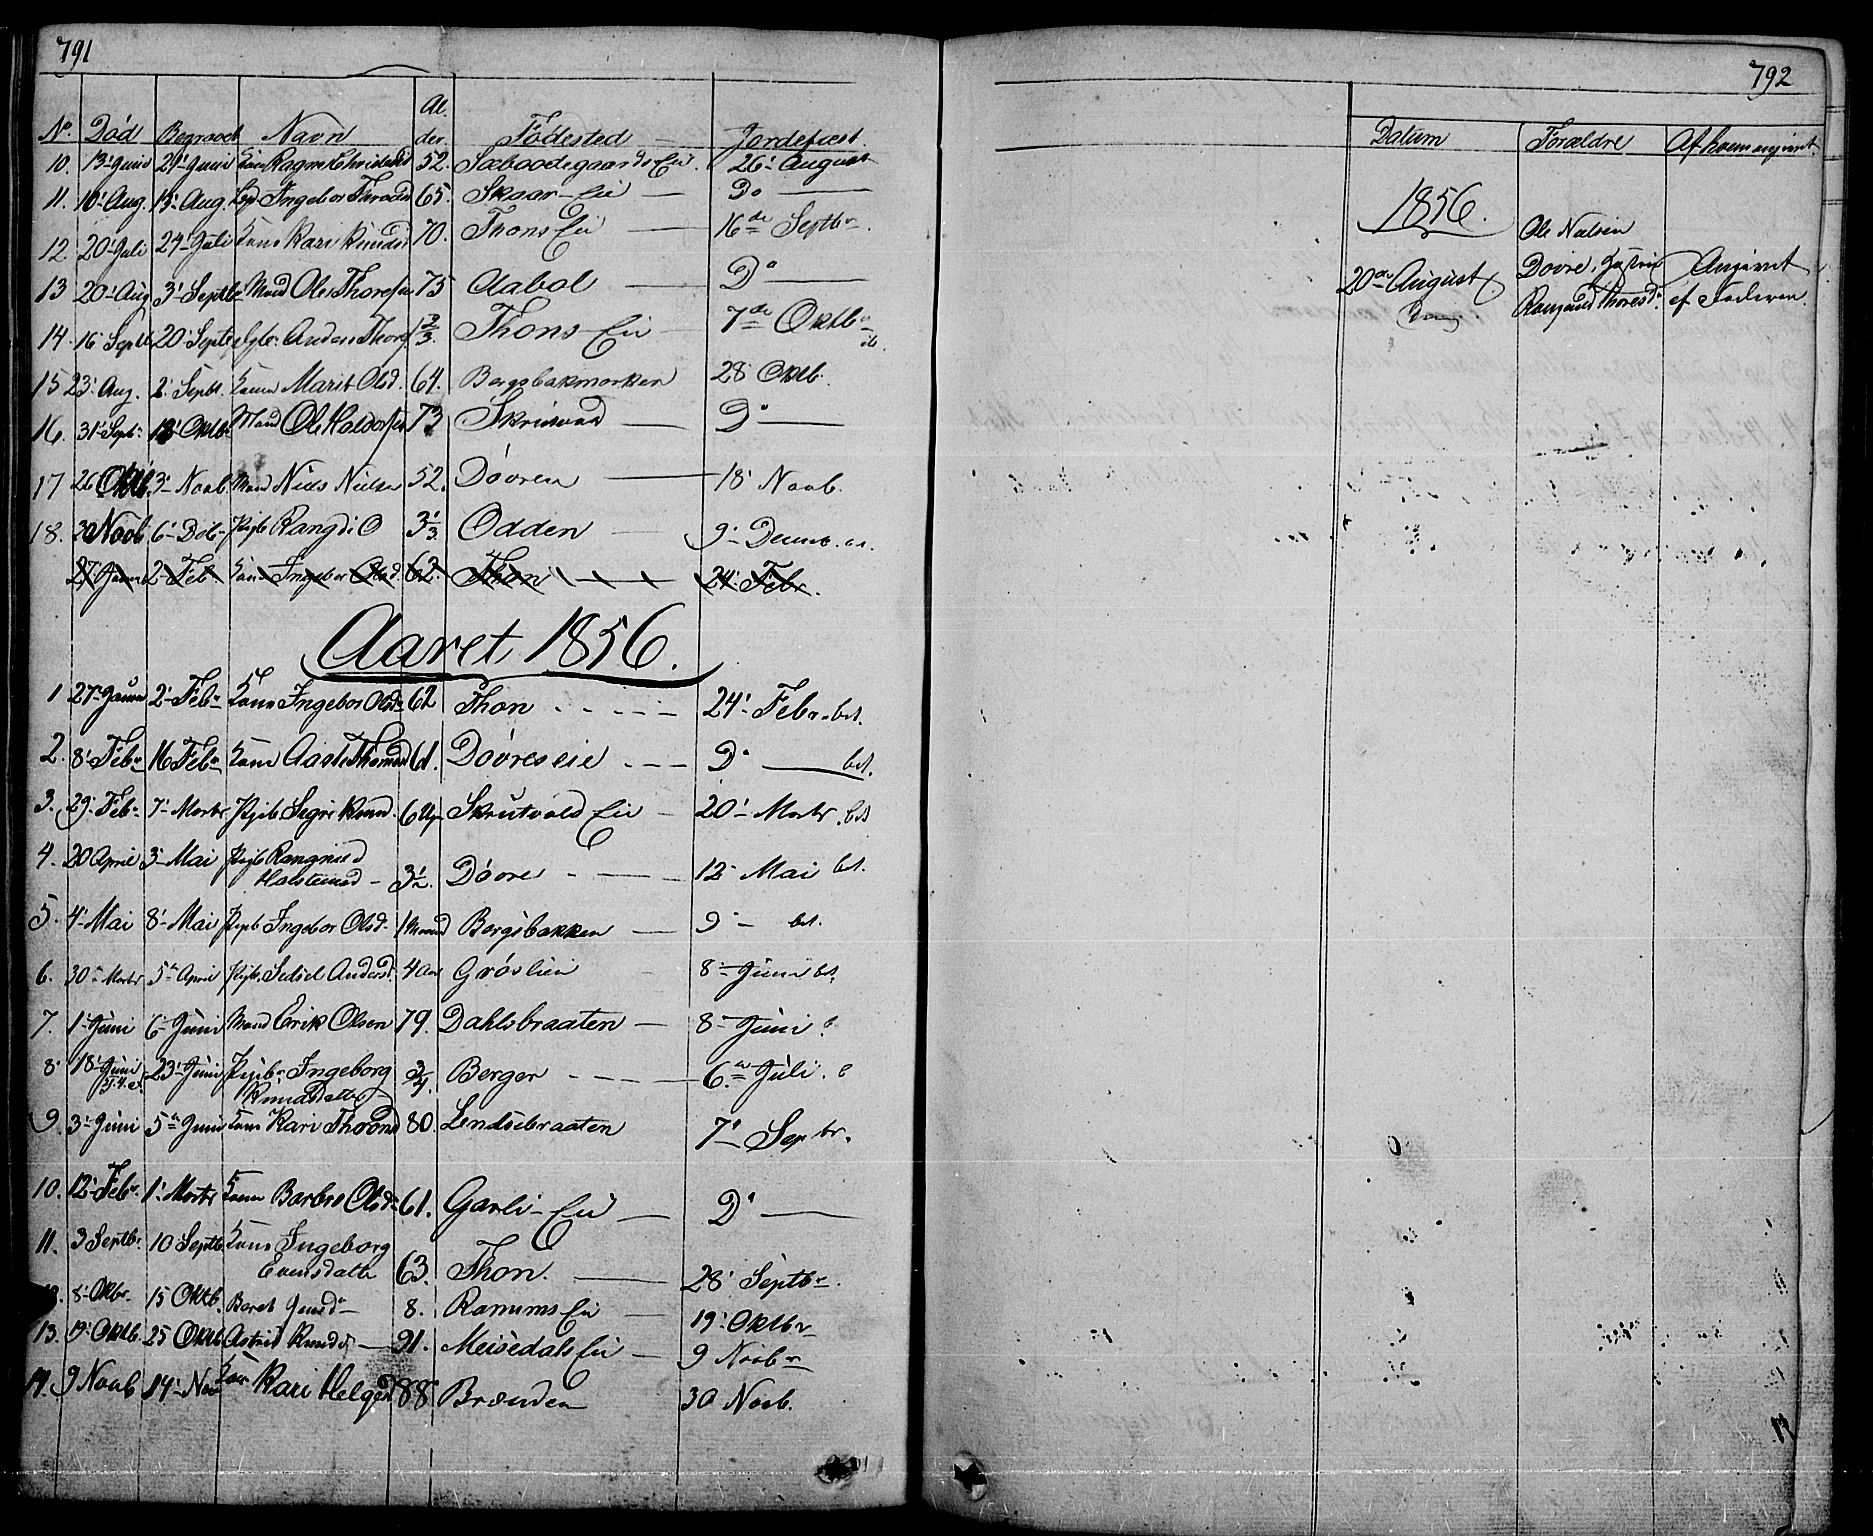 791
No Død Begravet Navn Alder Fødested Jordefæst
10. 13 Juni 29 Juni Kone Ragne Christensd 52. Sæboodegaards Eie 26' August
11. 10' Aug. 15' Aug. Ingebor Throndsd 65. Skaar-Eie Do
12. 20' Juli 24' Juli Kone Kari Knudsd 70. Thons Eie 16de Septbr.
13 20' Aug 3' Septbr Mand Ole Thoresen 75 Aabol Do
14. 16 Septb 20 Septb Anders Thor 1 2/3 Thons Eie 7de Oktbr
15 23' Aug. 2' Septbr. Kone Marit Olsd. 64. Bergsbakmarken 28' Oktb.
16. 31' Sept. 12' Oktbr Mand Ole Halvorsen 73 Skrutvold Do
17 26 Oktb. 3' Novb. Mand Niels Nielsen 52. Dovren 18' Novb.
18. 30 Novb 6' Deb. Pigeb Rangdi O 3 1/3 Odden 9' Decemb.
27' Janu 2' Feb Kone Ingebor Olsd. 62. Thon 24' Febr.
Aaret 1856.
1 27' Janu 2' Febr Kone Ingebor Olsd 62 Thon 24' Febr. bet.
2. 8' Febr 16 Febr Kone Aaste Thomasd 61. Dovres eie Do bet.
3. 29' Feb. 7' Marts Pigeb Sigri Knud. 6 Skrutvold Eie 20' Marts. bet
4. 20 April 3' Mai Pigb Rangnild
Halsteinsd 3 1/2. Dovre 12' Mai bet.
5. 4' Mai 8' Mai Pigeb Ingebor Olsd. 1 Maaned Bergsbakken 9' - bet.
6. 30' Marts 5' April Pigeb. Sidsel Andersd. 4 Aar Grøslien 8' Juni bet.
7. 1' Juni 6' Juni Mand Erik Olsen 79. Dahlsbraaten 8' Juni
8' 18' Juni 23' Juni Pigeb. Ingeborg 3/4. Berger 6te Juli.
Knudsdatter
9. 3' Juni 5' Juni Kone Kari Thrond 80. Lendsebraaten 7' Septbr.
10. 12' Febr. 1' Marts Kone Barbro Olsd. 61. Garli-Eie Do
11. 3 Septbr. 10 Septb. Kone Ingeborg
Evensdatter 63. Thon. 28' Septbr.
8' Oktbr. 15 Oktb. Beret Jensd 8. Ranums Eie 19' Oktbr
13. 19' Oktb. 25 Oktb Astrid Knudsd 91. Meisedals Eie 9 Novbr
14. 9 Novb 14' Nov Kone Kari Helgesd 88 Brænden 30 Novb.
792
Datum Forældre Af hvem angivet.
1856.
Ole Nielsen
20de August Dovre, Angivet
Rangnild Thoresd. af Faderen.